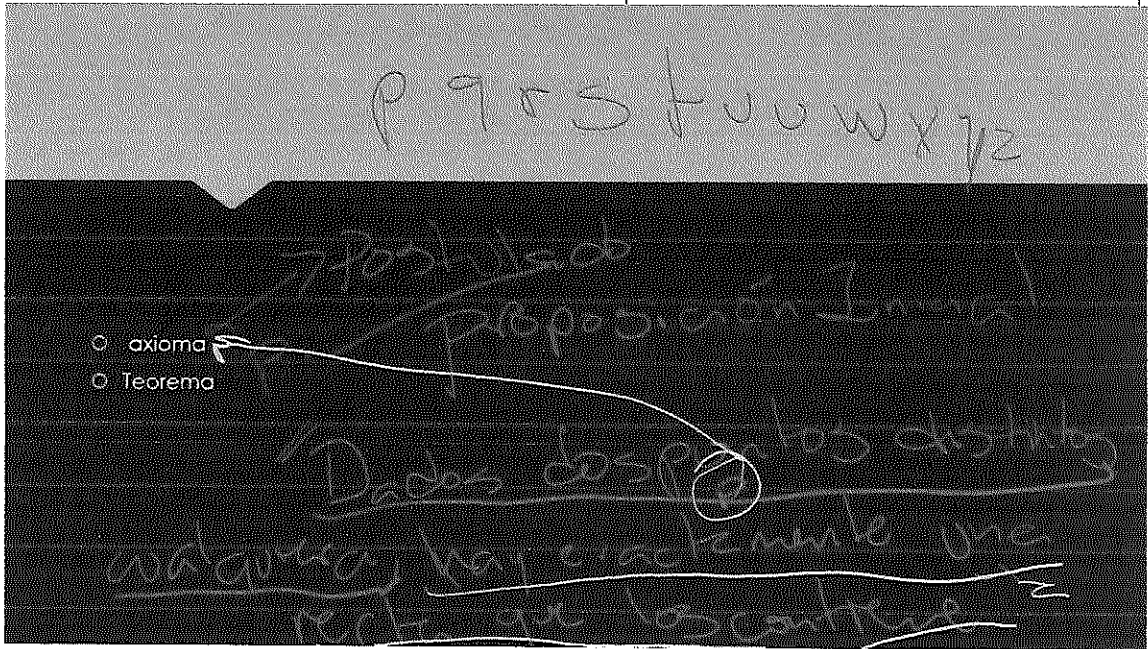 p q r s t u v w x y z
Postulado
proposición Inicial
axioma
Teorema
Dados dos puntos distintos
cualquiera, hay exactamente una
recta que los contiene